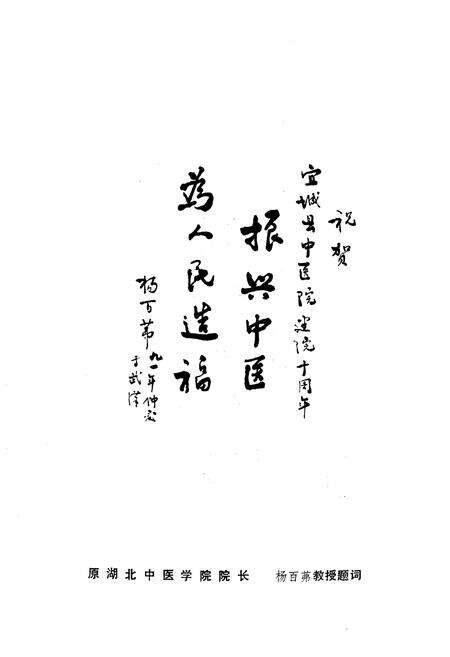 祝贺
宜城县中医院建院十周年
振兴中医
为人民造福
杨百茀
九一年仲秋
于武汉
原湖北中医学院院长 杨百茀教授题词